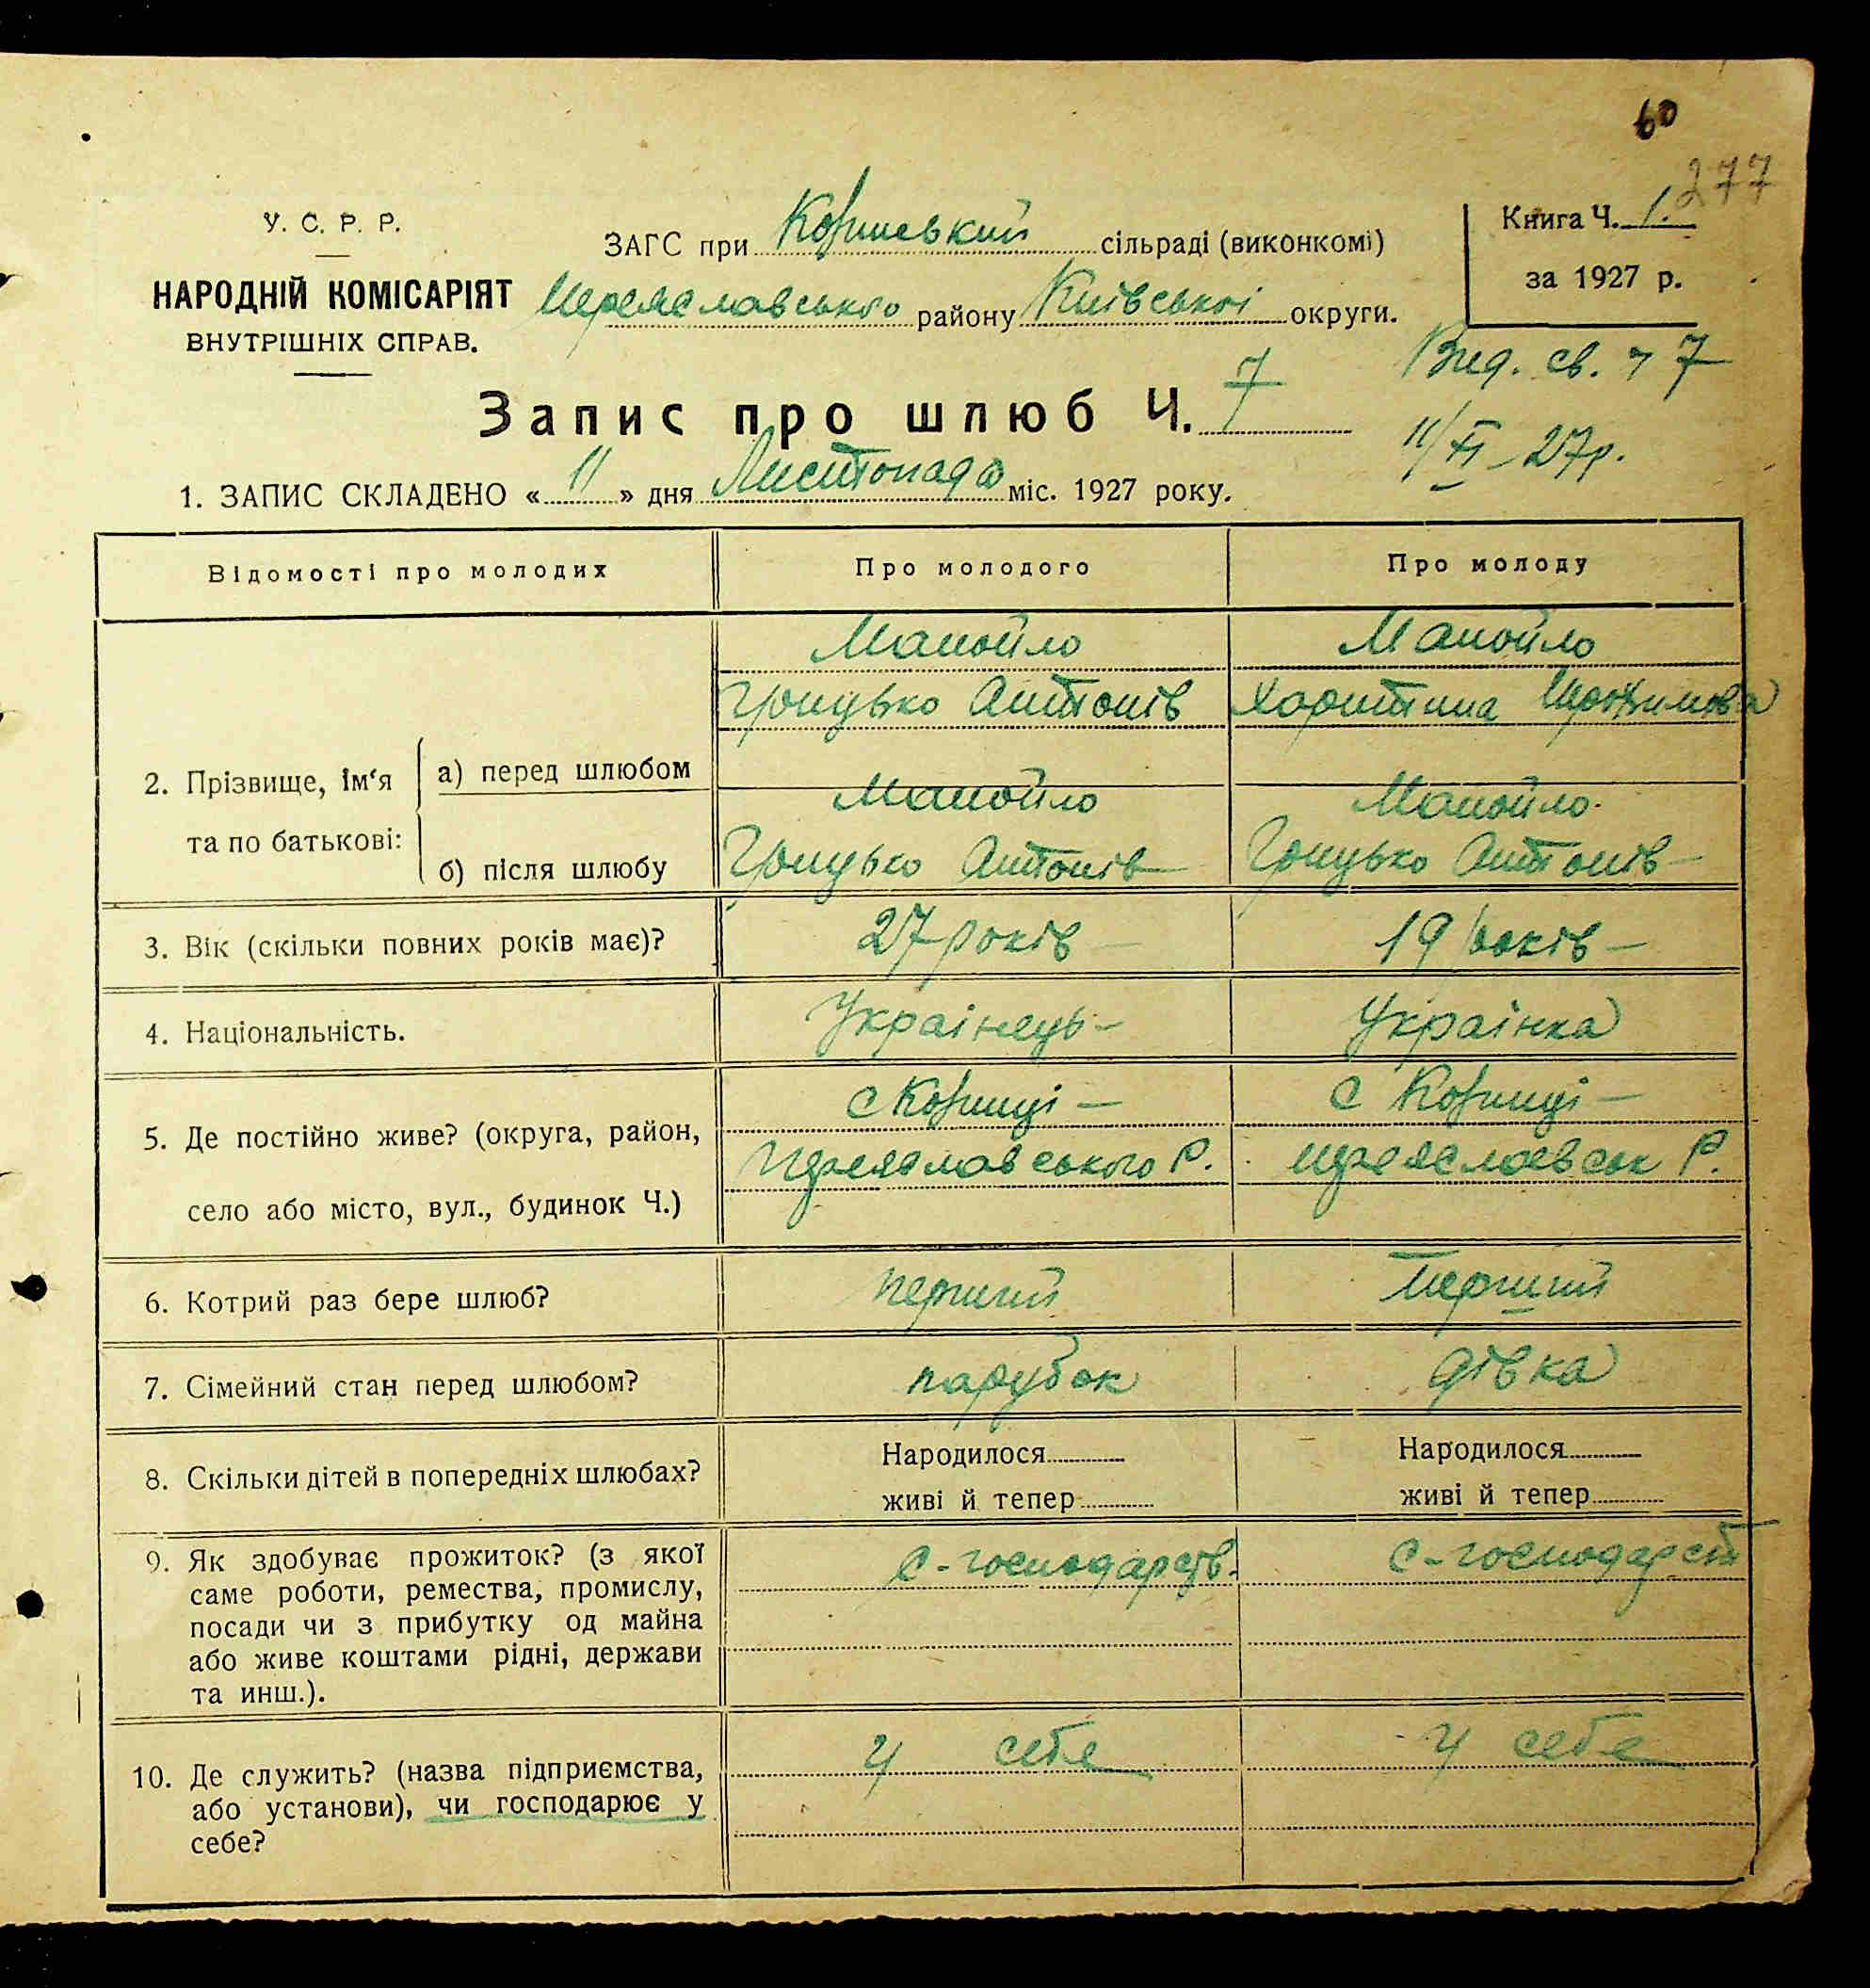 60
277
У. С. Р. Р.
НАРОДНІЙ КОМІСАРІЯТ
ВНУТРІШНІХ СПРАВ.
ЗАГС при Коржиевкий сільраді (виконкомі)
Переяславського району Київськоі округи.
Книга Ч. 1.
за 1927 р.
Вид. св. ч 7
11/XI-27р.
Запис про шлюб Ч. 7
1. ЗАПИС СКЛАДЕНО « 11 » дня Листопада міс. 1927 року.
Відомості про молодих
Про молодого
Про молоду
2. Прізвище, ім‘я та по батькові:
а) перед шлюбом
Манойло
Грицько Антонів
Манойло
Харитина
б) після шлюбу
Манойло
Грицько Антонів
Манойло
Грицько Антонів
3. Вік (скільки повних років має)?
27 років
19 років
4. Національність.
Українець
Українка
5. Де постійно живе? (округа, район,
село або місто, вул., будинок Ч.)
с
Переяславського Р.
с
Переяславськ Р.
6. Котрий раз бере шлюб?
перший
Перший
7. Сімейний стан перед шлюбом?
парубок
дівка
8. Скільки дітей в попередніх шлюбах?
Народилося
живі й тепер
Народилося
живі й тепер
9. Як здобуває прожиток? (з якої
саме роботи, ремества, промислу,
посади чи з прибутку од майна
або живе коштами рідні, держави
та инш.).
с-господарств.
с-господарст
10. Де служить? (назва підприємства,
або установи), чи господарює у
себе?
у себе
у себе